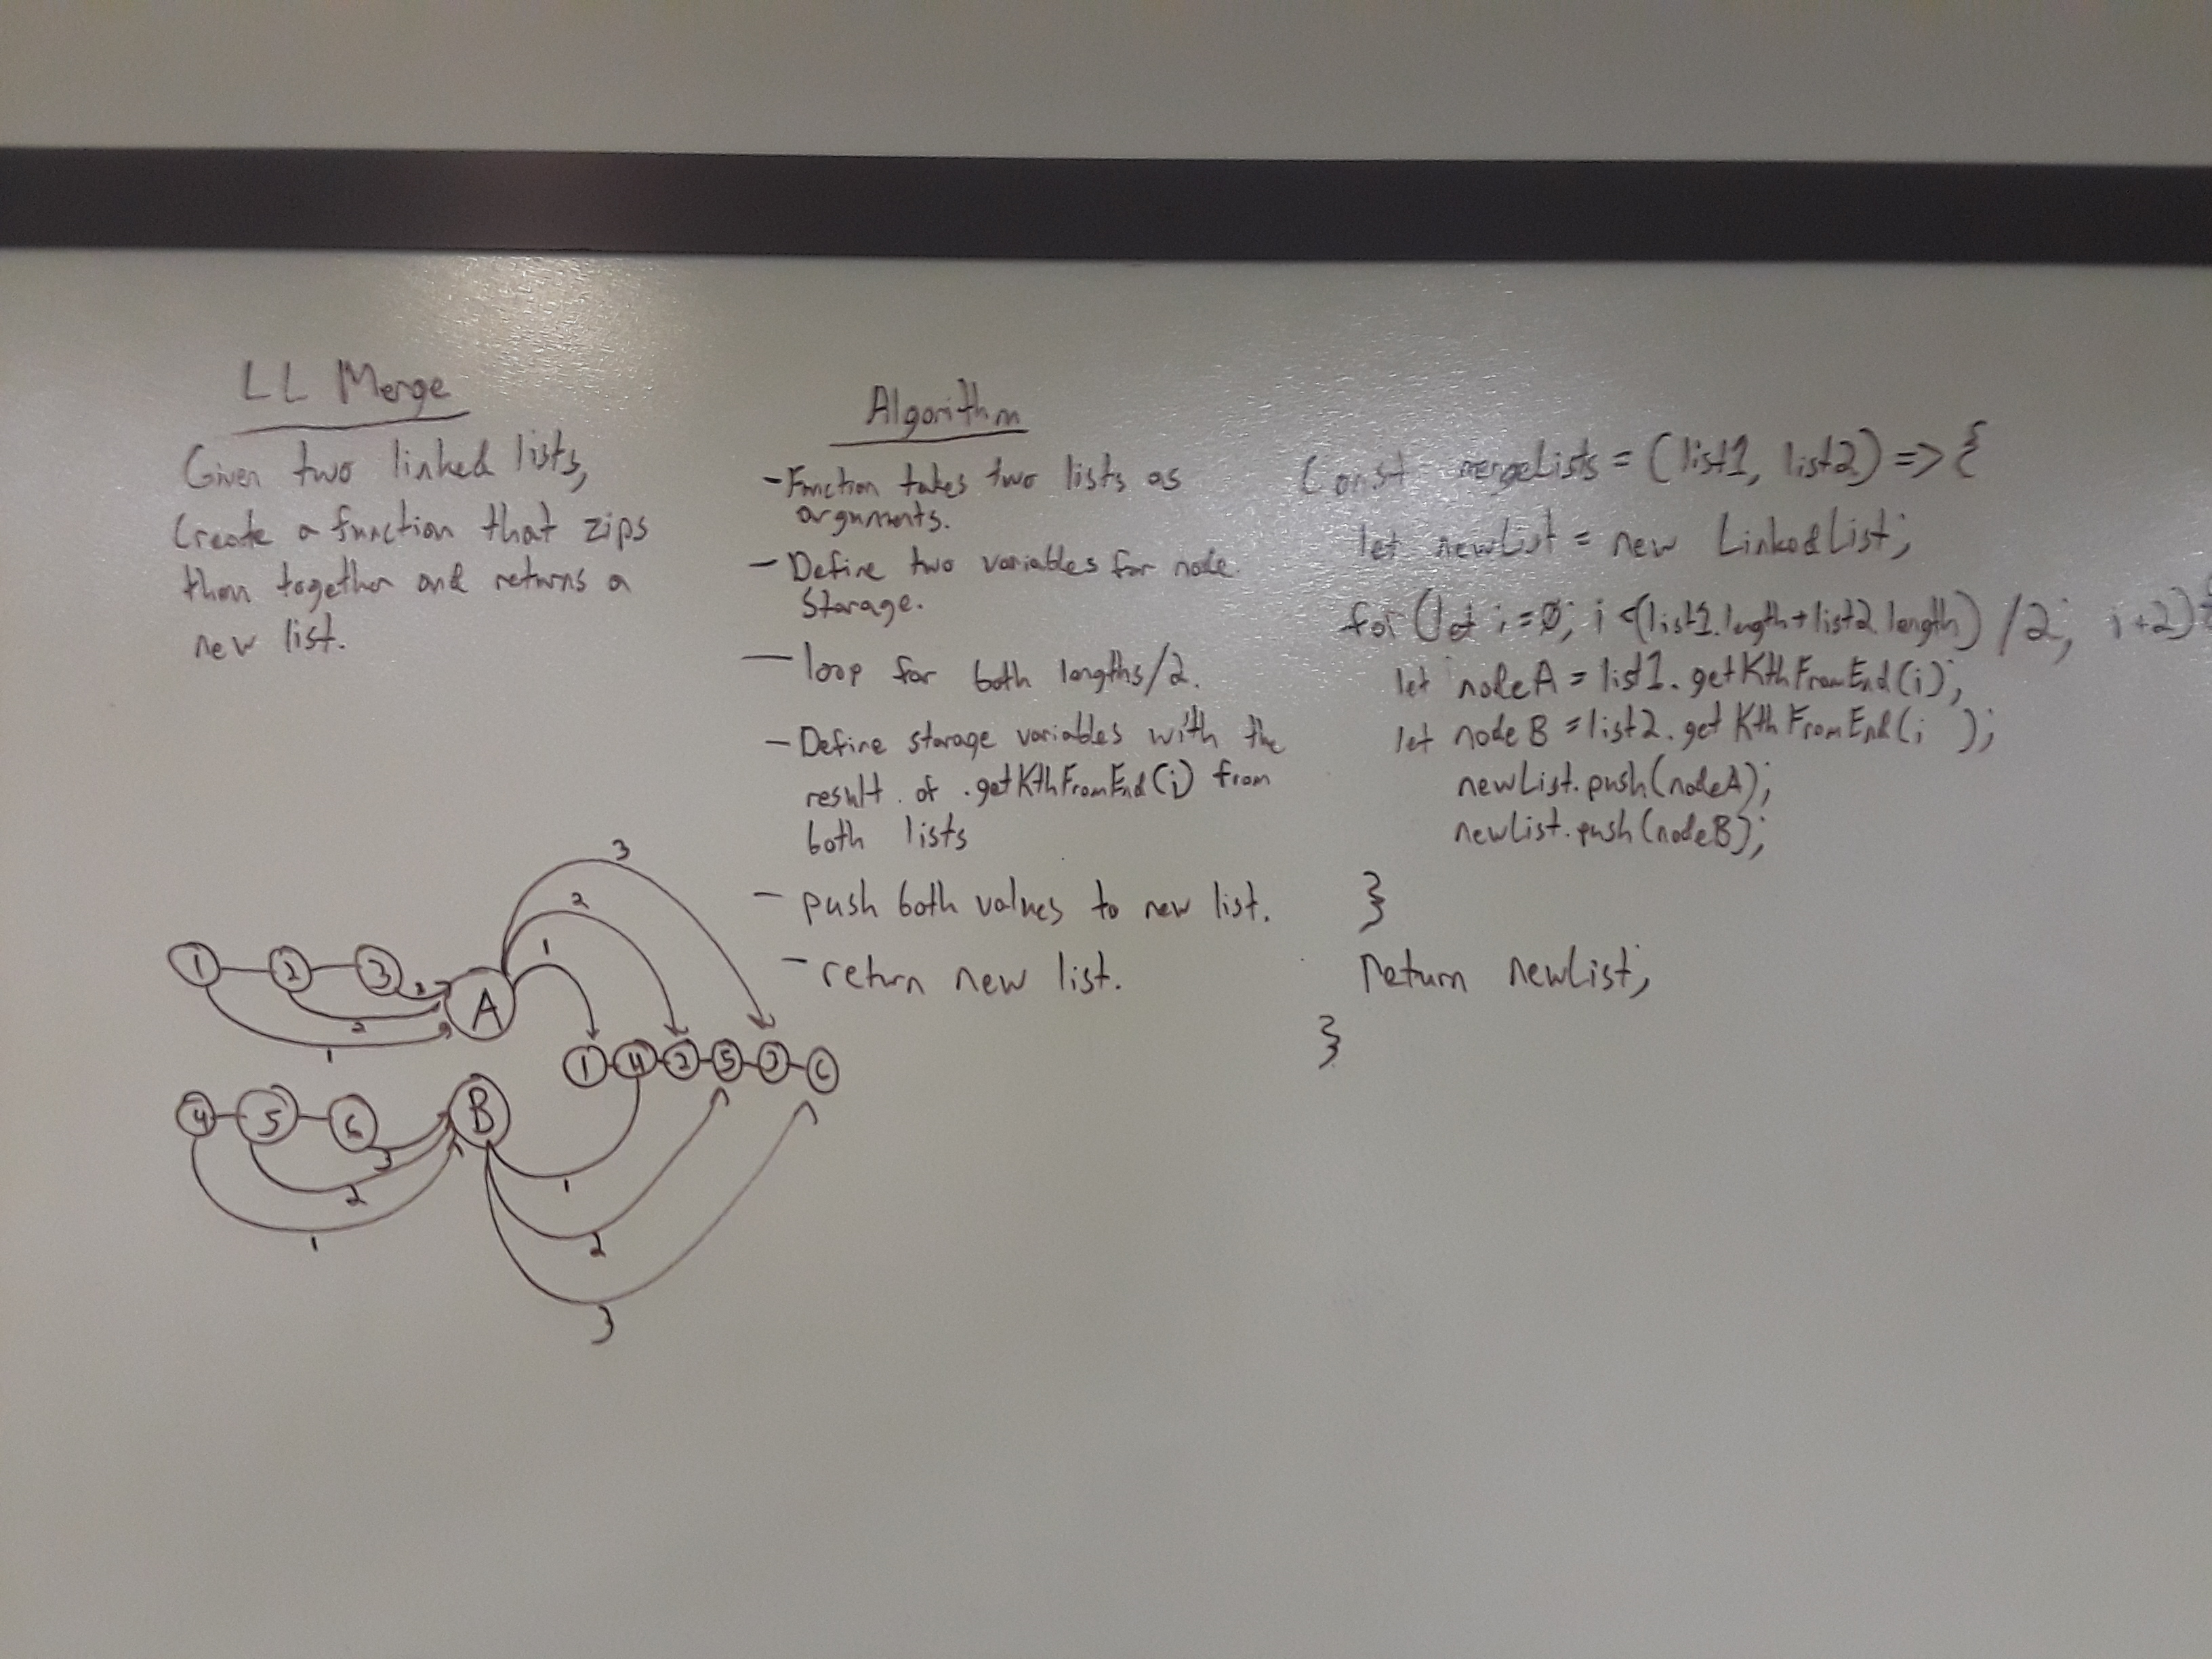 LL Merge
Given two linked lists,
Create a function that zips
them together and returns a
new list.
Algorithm
- Function takes two lists as
arguments.
- Define two variables for node
Storage.
- loop for both lengths/2.
- Define storage variables with the
result of .getKthFromEnd(i) from
both lists
- push both values to new list.
- return new list.
Const mergeLists = (list1, list2) => {
let newList = new LinkedList;
for (let i = 0; i < (list1.length + list2.length) /2; i+2) {
let nodeA = list1.getKthFromEnd(i);
let nodeB = list2.getKthFromEnd(i );
newList.push(nodeA);
newList.push(nodeB);
}
return newList;
}
3
2
1
1 2 3
3
A
2
1
1 4 2 5 3 6
4 5 6
B
3
2
1
1
2
3